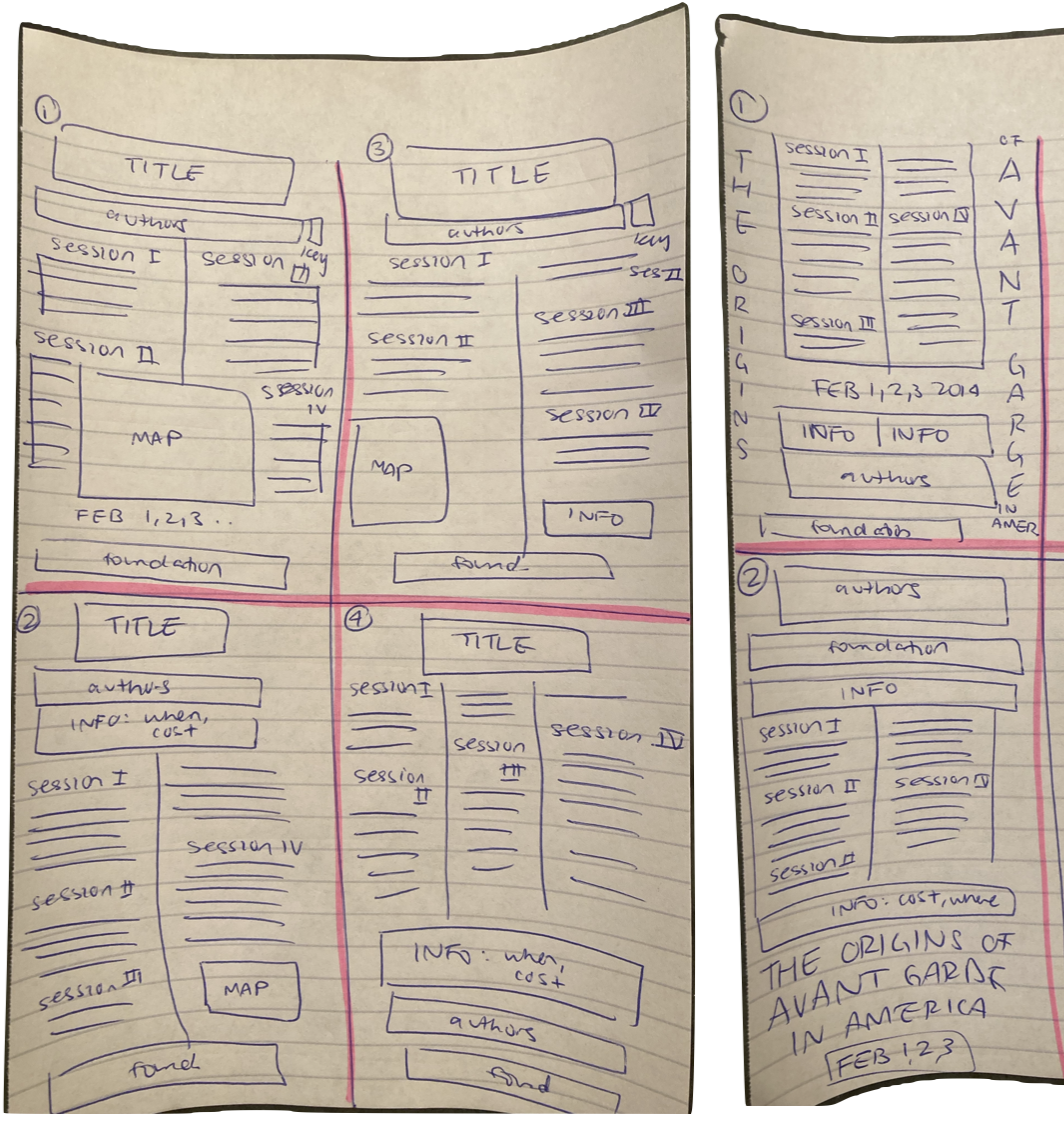 ①
TITLE
authors
key
session I
session III
session II
MAP
session IV
FEB 1,2,3 ..
foundation
③
TITLE
authors
key
session I
ses II
session III
session II
session IV
MAP
INFO
found
②
TITLE
authors
INFO: when,
cost
session I
session IV
session II
session III
MAP
found
④
TITLE
session I
session
III
session IV
session
II
INFO: when,
cost
authors
found
①
THE ORIGINS
session I
session II
session IV
session III
OF
AVANT GARGE
IN
AMER
FEB 1,2,3 2014
INFO | INFO
authors
foundation
②
authors
foundation
INFO
session I
session II
session IV
session II
INFO: cost, where
THE ORIGINS OF
AVANT GARDE
IN AMERICA
FEB 1,2,3